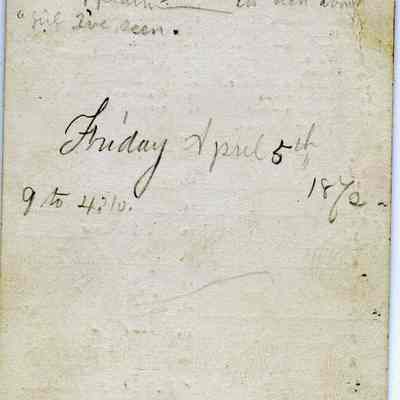 girl I've seen.
Friday April 5th
1872-
9 to 4:10.